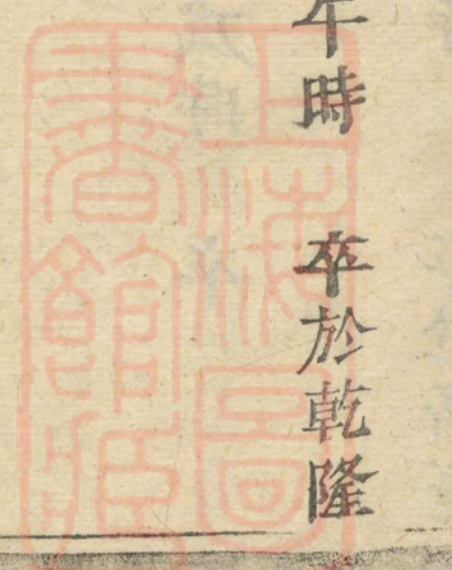 午時 卒於乾隆
上海圖
書館藏